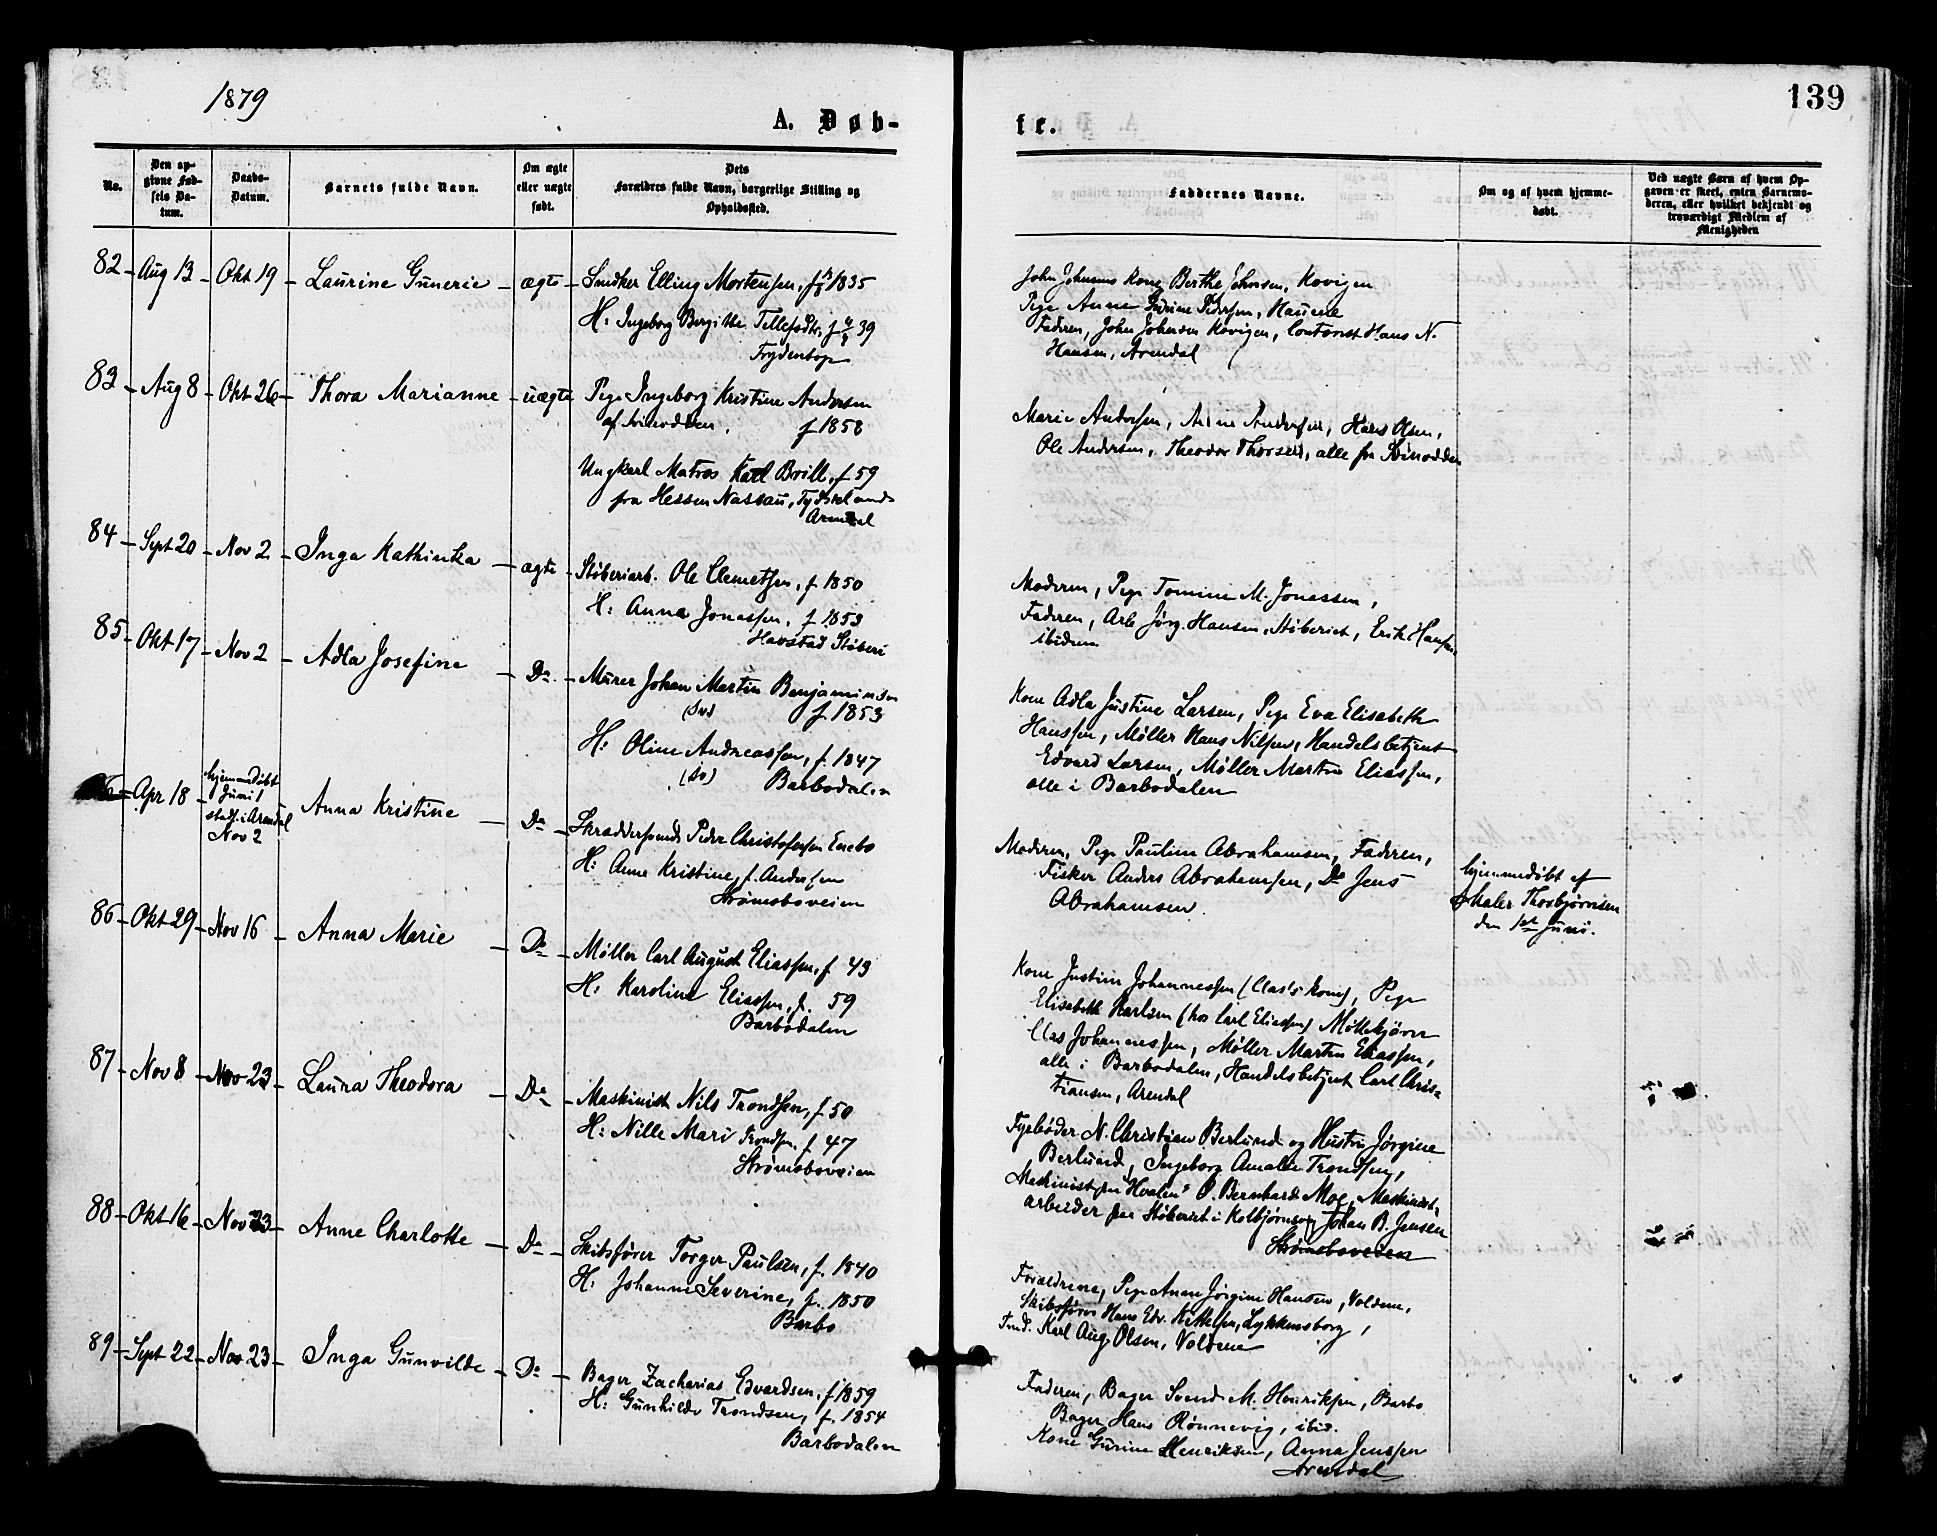 1879
139
A. Døb-
te.
No.
Den op-
givne Fød-
sels Da-
tum.
Daabs-
Datum.
Barnets fulde Navn.
Om ægte
eller uægte
født.
Dets
Forældres fulde Navn, borgerlige Stilling og
Opholdssted.
Faddernes Navne.
Om og af hvem hjemme-
døbt.
Ved uægte Børn af hvem Op-
gaven er skeet, enten Barnemo-
deren, eller hvilket bekjendt og
troværdigt Medlem af
Menigheden
82 - Aug 13 - Okt 19 - Laurine Gunerie - ægte - Snedker Elling Mortensen, f 1835
H: Ingeborg Bergitte Tellefsdtr, f 39
Frydentop
John Johnsens Kone Berthe Johnsen, Kovigen
Pige Anne Gurine Pedersen, Hausene
Faderen, John Johnsen Kovigen, Contorist Hans N.
Hansen, Arendal
83 - Aug 8 - Okt 26 - Thora Marianne - uægte Pige Ingeborg Kristine Andersen
af Svinodden, f 1858
Ungkarl Matros Karl Brill, f 59
fra Hessen Nassau, Tydskland
Arendal
Marie Andersen, Anne Andersen, Hans Olsen,
Ole Andersen, Theodor Thorsen, alle fra Svinodden
84 - Sept 20 - Nov 2 - Inga Kathinka - ægte - Støberiarb. Ole Clemetsen, f 1850
H: Anna Jonassen, f 1853
Havstad Støberi
Moderen, Pige Tomine M. Jonassen,
Faderen, Arb Jörg. Hansen, Støberiet, Erik Hansen
ibidem
85 - Okt 17 - Nov 2 - Adla Josefine - Do - Murer Johan Martin Benjaminsen
(Sv) f 1853
H: Oline Andreassen, f. 1847
(Sv) Barbodalen
Kone Adla Justine Larsen, Pige Eva Elisabeth
Hanssen, Møller Hans Nilsen, Handelsbetjent
Edvard Larsen, Møller Martin Eliassen,
alle i Barbodalen
Apr 18 - hjemmedøbt
Juni 1
stadf. i Arendal
Nov 2
Anna Kristine - Do - Skræddersvend Peder Christofersen Enebo
H: Anne Kristine f. Andersen
Strømsboveien
Moderen, Pige Pauline Abrahamsen, Faderen,
Fisker Anders Abrahamsen, Do Jens
Abrahamsen.
hjemmedøbt af
Maler Thorbjørnsen
den 1st Juni.
86 - Okt 29 - Nov 16 - Anna Marie - Do - Møller Carl August Eliassen, f 49
H: Karoline Eliassen, f. 59
Barbodalen
Kone Justine Johannessen (Clas's kone), Pige
Elisabeth Karlsen (hos Carl Eliassen) Möllekjörer
Clas Johannessen, Møller Martin Eliassen,
alle i Barbodalen, Handelsbetjent Carl Chris-
tiansen, Arendal
87 - Nov 8 - Nov 23 - Laura Theodora - Do - Maskinist Nils Trondsen, f 50
H: Nille Mari Trondsen f. 47
Strømsboveien
Fyrbøder N. Christian Berlund og Hustru Jørgine
Berlund, Ingeborg Amalie Trondsen,
Maskinist paa "Hvalen" O. Bernhard Moe, Maskinist,
arbeider paa Støberiet i Kolbjørnsvig Johan B. Jensen
Strømsboveien
88 - Okt 16 - Nov 23 - Anne Charlotte - Do - Skibsfører Torger Paulsen, f. 1840
H: Johanne Severine, f. 1850
Barbo
Forældrene, Pige Anne Jörgine Hansen, Voldene,
Skibsfører Hans Edv. Kittelsen, Lykkensborg,
Karl Aug. Olsen, Voldene
89 - Sept 22 - Nov 23 - Inga Gunvilde - Do - Bager Zacharias Edvardsen, f 1859
H: Gunhilde Trondsen, f. 1854
Barbodalen
Faderen, Bager Svend M. Henriksen, Barbo
Bager Hans Rønnevig, ibid.
Kone Gurine Henriksen, Anna Jenssen
Arendal